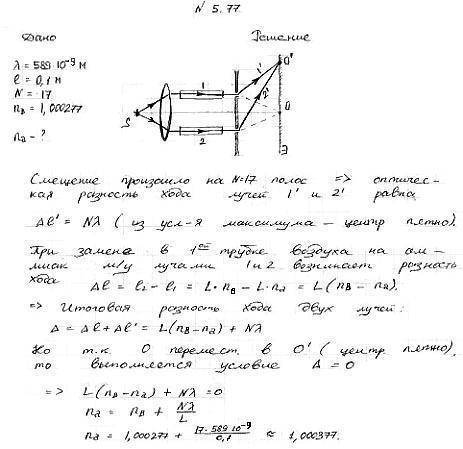 N 5.77
Дано
Решение
λ = 589·10⁻⁹ м
ℓ = 0,1 м
N = 17
n_B = 1,000277
n_a - ?
S
1
2
1'
2'
O'
O
Э
Смещение произошло на N=17 полос => оптичес-
кая разность хода лучей 1' и 2' равна
Δℓ' = Nλ ( из усл-я максимума – центр пятно).
При замене в 1ой трубке воздуха на ам-
миак м/у лучами 1 и 2 возникает разность
хода Δℓ = ℓ₂ - ℓ₁ = L·n_B - L·n_a = L(n_B - n_a).
=> Итоговая разность хода двух лучей:
Δ = Δℓ + Δℓ' = L(n_B - n_a) + Nλ
Но т.к. O перемест. в O' ( центр пятно),
то выполняется условие Δ = 0
=> L(n_B - n_a) + Nλ = 0
n_a = n_B + Nλ/L
n_a = 1,000277 + 17·589·10⁻⁹/0,1 ≈ 1,000377.